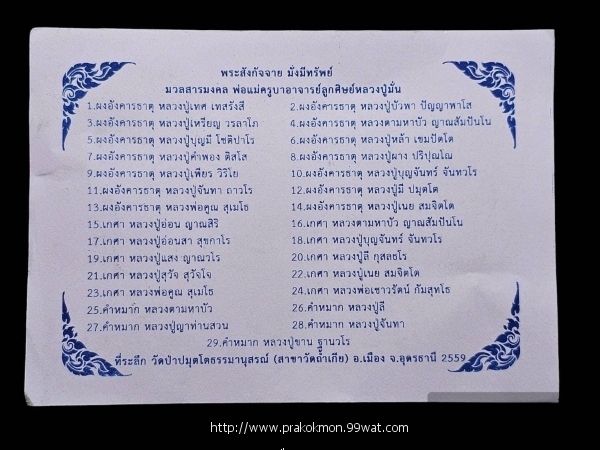 พระสังกัจจาย มั่งมีทรัพย์
มวลสารมงคล พ่อแม่ครูบาอาจารย์ลูกศิษย์หลวงปู่มั่น
1.ผงอังคารธาตุ หลวงปู่เทศ เทสรังสี 2.ผงอังคารธาตุ หลวงปู่บัวพา ปัญญาพาโส
3.ผงอังคารธาตุ หลวงปู่เหรียญ วรลาโภ 4.ผงอังคารธาตุ หลวงตามหาบัว ญาณสัมปันโน
5.ผงอังคารธาตุ หลวงปู่บุญมี โชติปาโร 6.ผงอังคารธาตุ หลวงปู่หล้า เขมปัตโต
7.ผงอังคารธาตุ หลวงปู่คำพอง ติสโส 8.ผงอังคารธาตุ หลวงปู่ผาง ปริปุณโณ
9.ผงอังคารธาตุ หลวงปู่เพียร วิริโย 10.ผงอังคารธาตุ หลวงปู่บุญจันทร์ จันทวโร
11.ผงอังคารธาตุ หลวงปู่จันทา ถาวโร 12.ผงอังคารธาตุ หลวงปู่มี ปมุตโต
13.ผงอังคารธาตุ หลวงพ่อคูณ สุเมโธ 14.ผงอังคารธาตุ หลวงปู่เนย สมจิตโต
15.เกศา หลวงปู่อ่อน ญาณสิริ 16.เกศา หลวงตามหาบัว ญาณสัมปันโน
17.เกศา หลวงปู่อ่อนสา สุขกาโร 18.เกศา หลวงปู่บุญจันทร์ จันทวโร
19.เกศา หลวงปู่แสง ญาณวโร 20.เกศา หลวงปู่ลี กุสลธโร
21.เกศา หลวงปู่สุวัจ สุวัจโจ 22.เกศา หลวงปู่เนย สมจิตโต
23.เกศา หลวงพ่อคูณ สุเมโธ 24.เกศา หลวงพ่อเชาวรัตน์ กัมสุทโธ
25.คำหมาก หลวงตามหาบัว 26.คำหมาก หลวงปู่ลี
27.คำหมาก หลวงปู่ญาท่านสวน 28.คำหมาก หลวงปู่จันทา
29.คำหมาก หลวงปู่ขาน ฐานวโร
ที่ระลึก วัดป่าปมุตโตธรรมานุสรณ์ (สาขาวัดถ้ำเกีย) อ.เมือง จ.อุดรธานี 2559
http://www.prakokmon.99wat.com